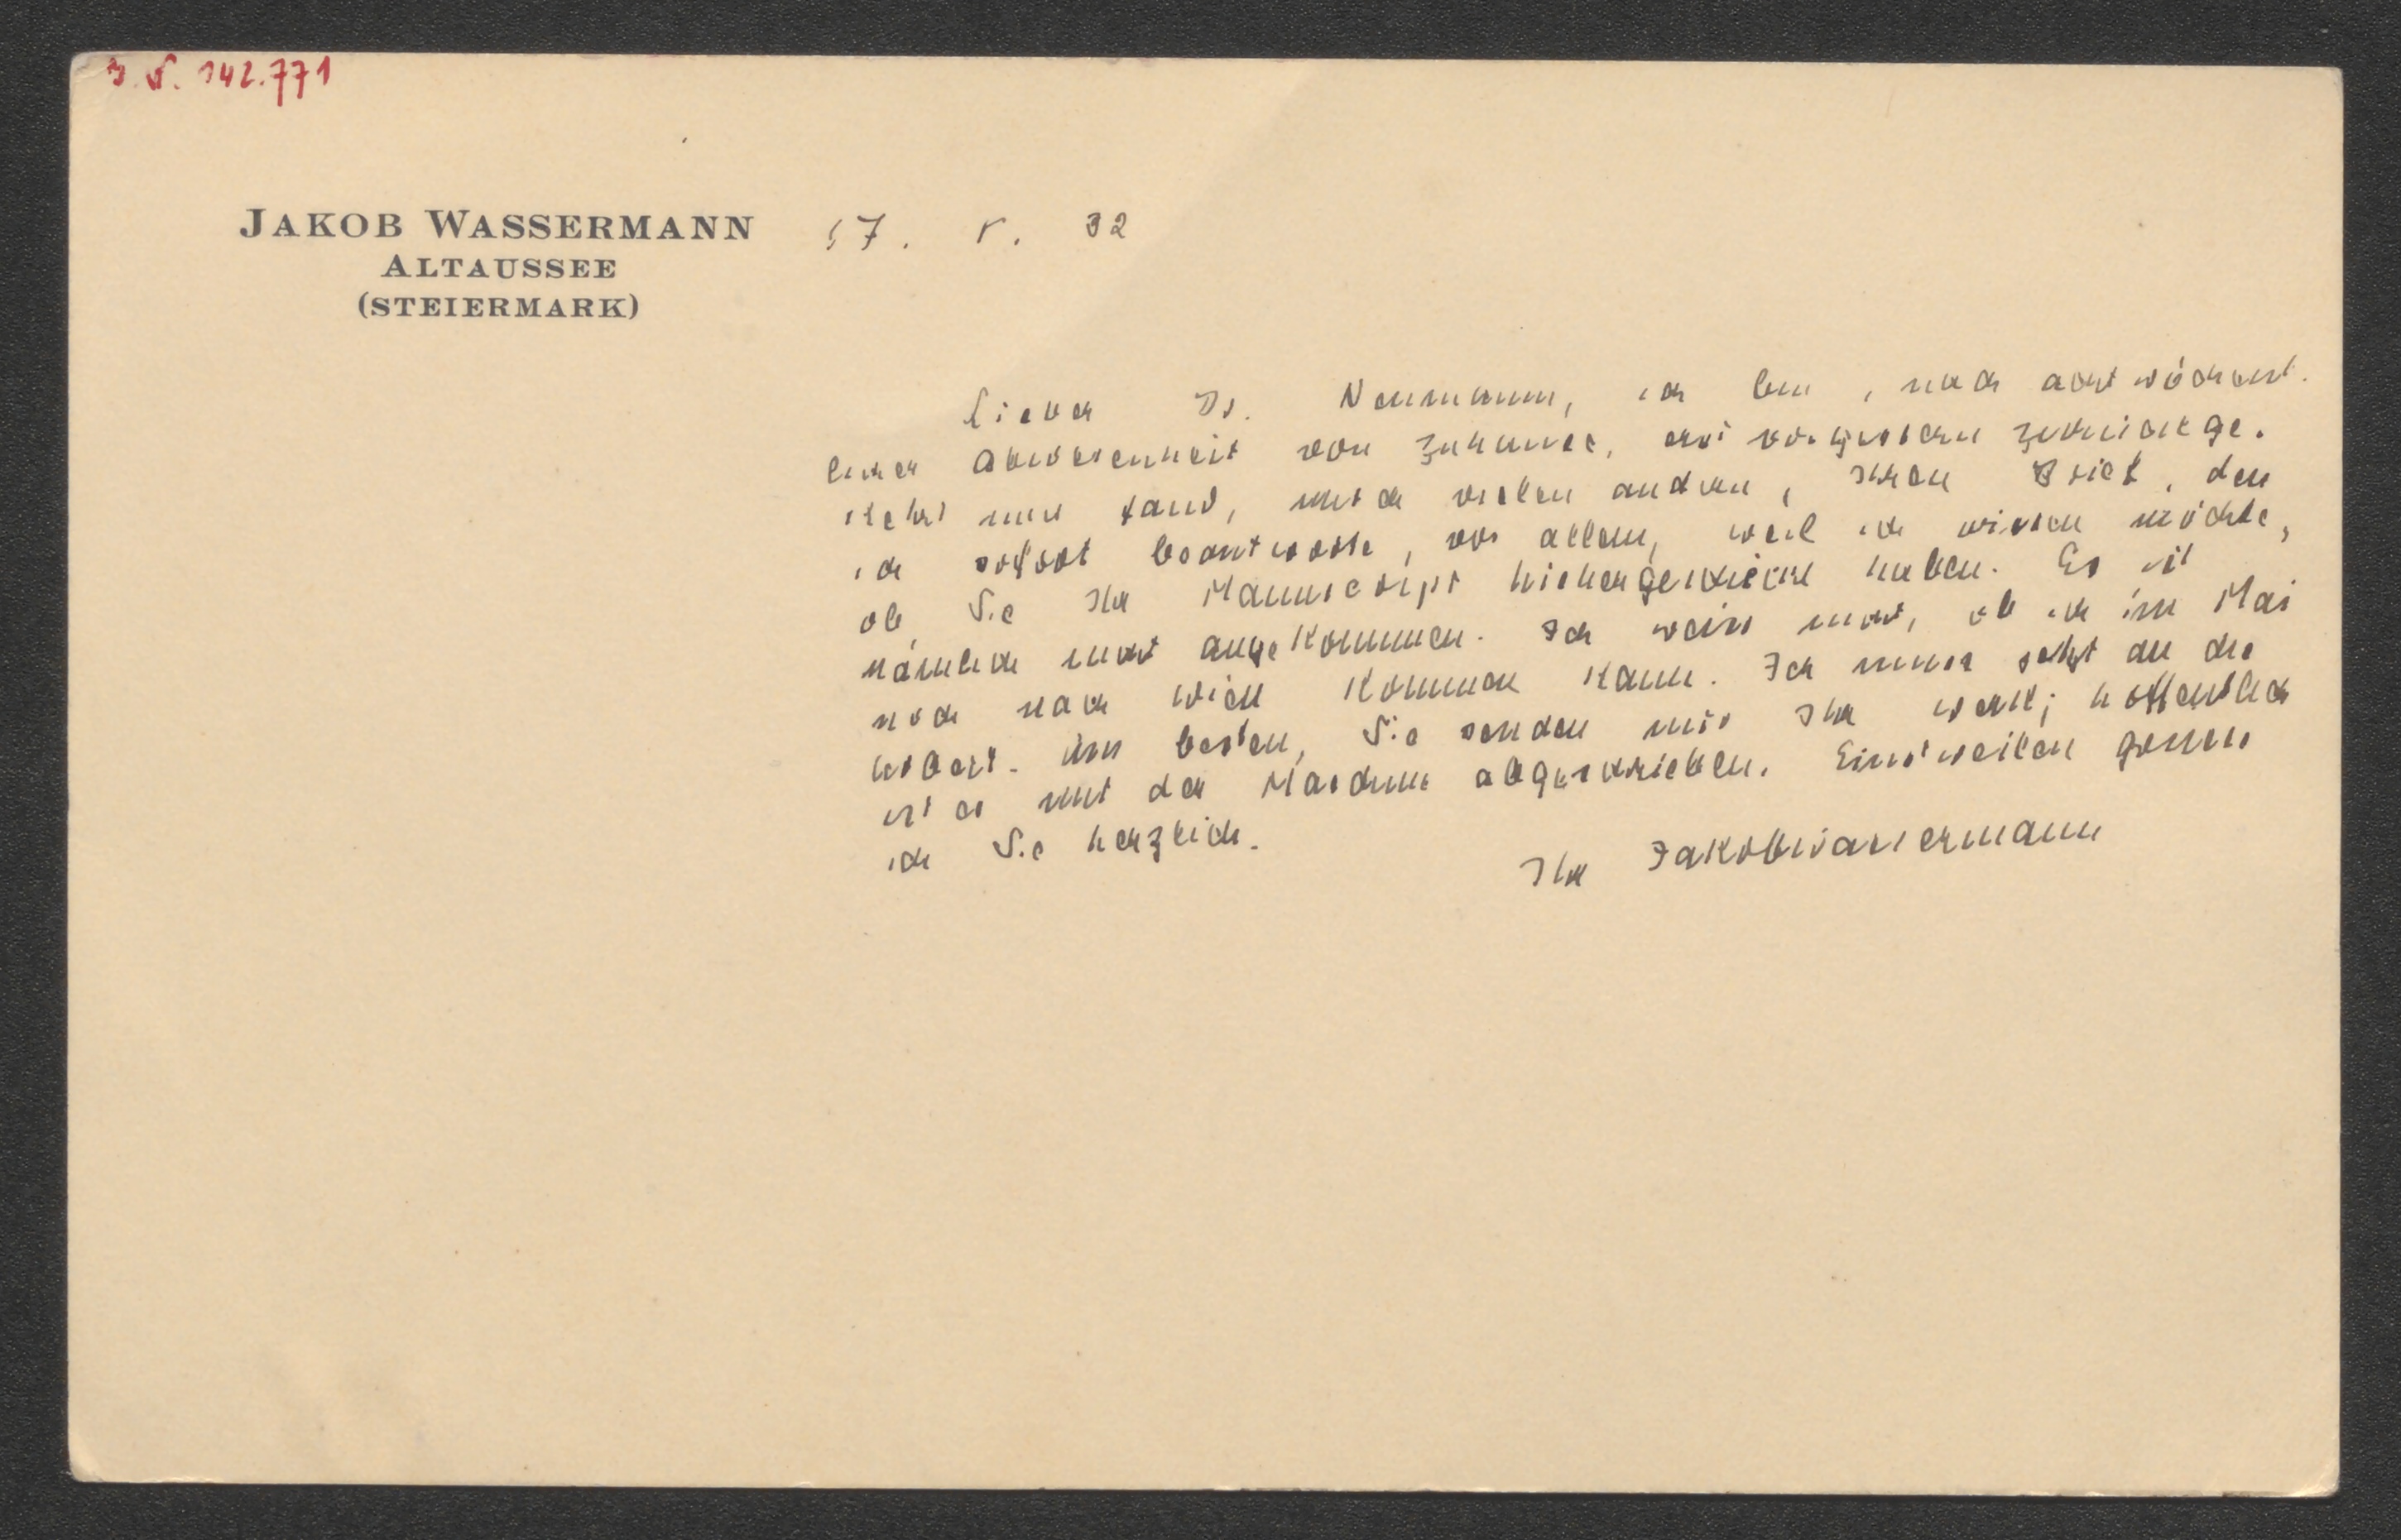 I. N. 142.771
JAKOB WASSERMANN
ALTAUSSEE
(STEIERMARK)
17. V. 32
Lieber Dr. Neumann, ich bin, nach achtwöchent-
licher Abwesenheit von Zuhause, erst vorgestern zurückge-
kehrt und fand, unter vielen andern, Ihren Brief, den
ich sofort beantworte, vor allem, weil ich wissen möchte,
ob Sie Ihr Manuscript hiehergeschickt haben. Es ist
nämlich nicht angekommen. Ich weiss nicht, ob ich im Mai
noch nach Wien kommen kann. Ich muss jetzt an die
Arbeit. Am besten, Sie senden mir Ihr Werk; hoffentlich
ist es mit der Maschine abgeschrieben. Einstweilen grüsse
ich Sie herzlich.
Ihr JakobWassermann